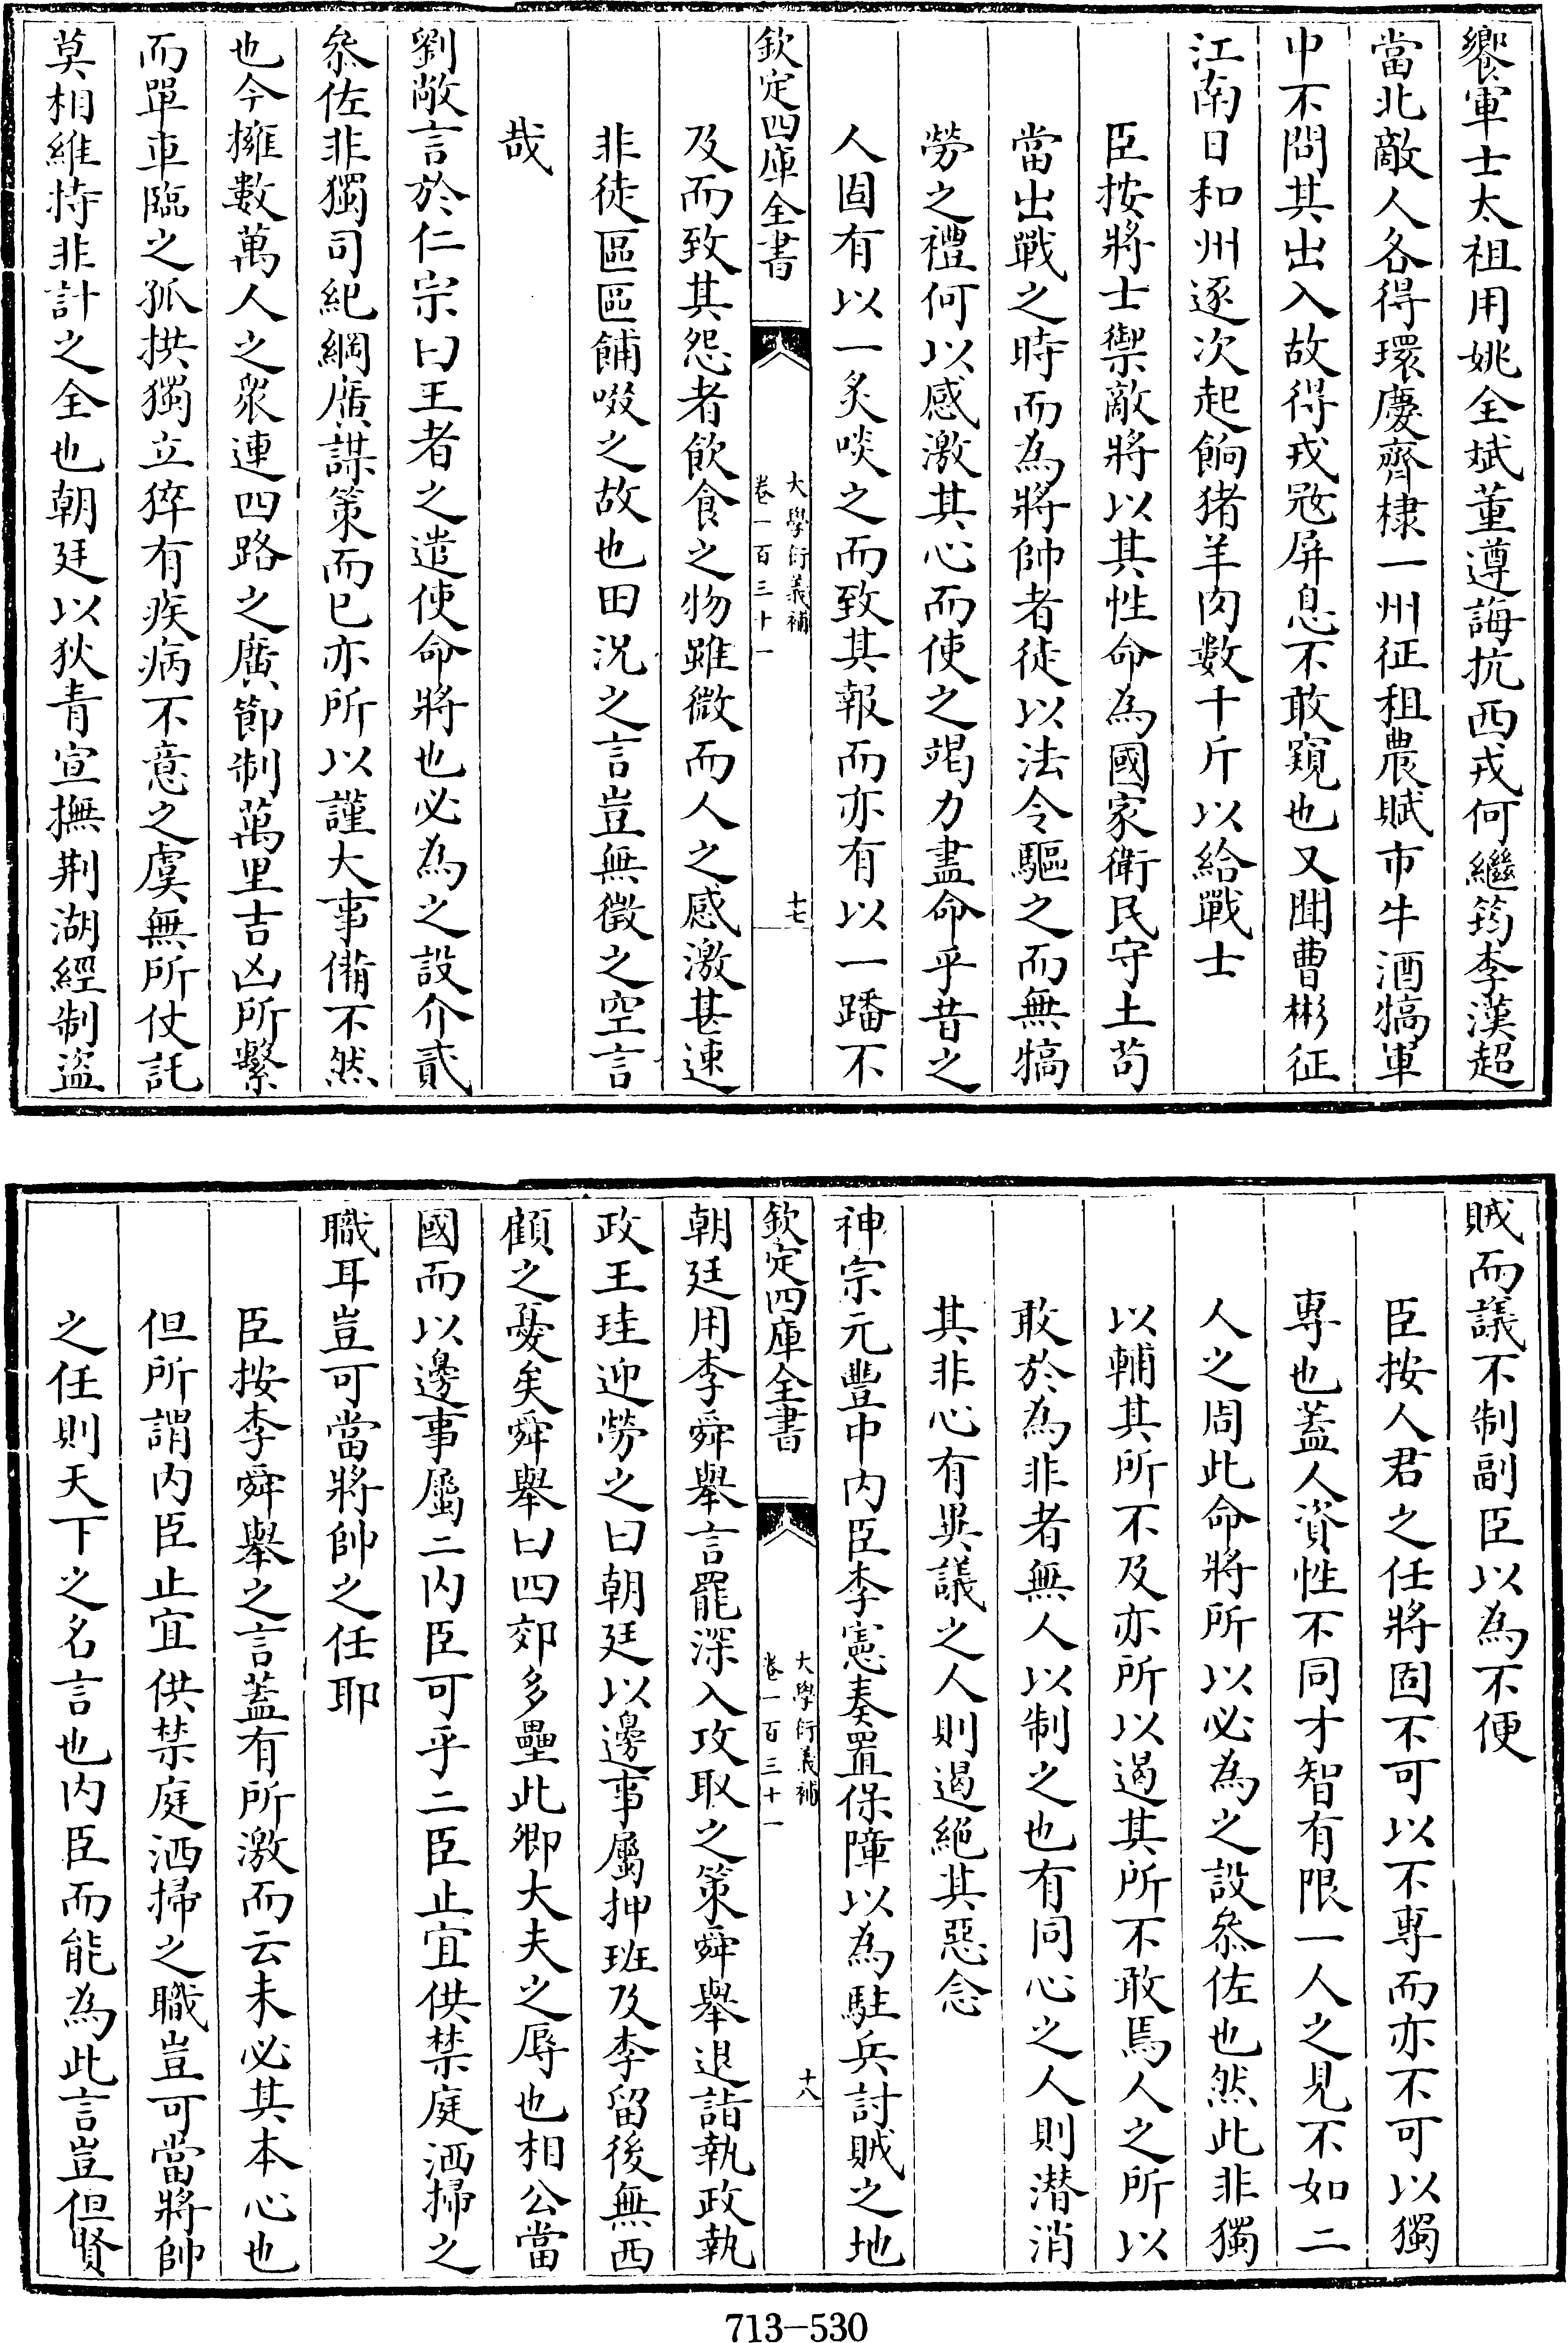 饗軍士太祖用姚全斌董遵誨抗西戎何繼筠李漢超
當北敵人各得環慶齊棣一州征租農賦市牛酒犒軍
中不問其出入故得戎冦屏息不敢窺也又聞曹彬征
江南日和州逐次起餉猪羊肉數千斤以給戰士
臣按將士禦敵將以其性命為國家衛民守土苟
當出戰之時而為將帥者徒以法令驅之而無犒
勞之禮何以感激其心而使之竭力盡命乎昔之
人固有以一炙啖之而致其報而亦有以一蹯不
欽定四庫全書
大學衍義補
卷一百三十一
十七
及而致其怨者飲食之物雖微而人之感激甚速
非徒區區餔啜之故也田況之言豈無徵之空言
哉
劉敞言於仁宗曰王者之遣使命將也必為之設介貳
叅佐非獨司紀綱廣謀策而已亦所以謹大事備不然
也今擁數萬人之衆連四路之廣節制萬里吉凶所繫
而單車臨之孤拱獨立猝有疾病不意之虞無所仗託
莫相維持非計之全也朝廷以狄青宣撫荆湖經制盜
賊而議不制副臣以為不便
臣按人君之任將固不可以不專而亦不可以獨
專也蓋人資性不同才智有限一人之見不如二
人之周此命將所以必為之設叅佐也然此非獨
以輔其所不及亦所以遏其所不敢焉人之所以
敢於為非者無人以制之也有同心之人則潜消
其非心有異議之人則遏絕其惡念
神宗元豐中内臣李憲奏置保障以為駐兵討賊之地
欽定四庫全書
大學衍義補
卷一百三十一
十八
朝廷用李舜舉言罷深入攻取之策舜舉退詣執政執
政王珪迎勞之曰朝廷以邊事屬押班及李留後無西
顧之憂矣舜舉曰四郊多壘此卿大夫之辱也相公當
國而以邊事屬二内臣可乎二臣止宜供禁庭洒掃之
職耳豈可當將帥之任耶
臣按李舜舉之言蓋有所激而云未必其本心也
但所謂内臣止宜供禁庭洒掃之職豈可當將帥
之任則天下之名言也内臣而能為此言豈但賢
713-530